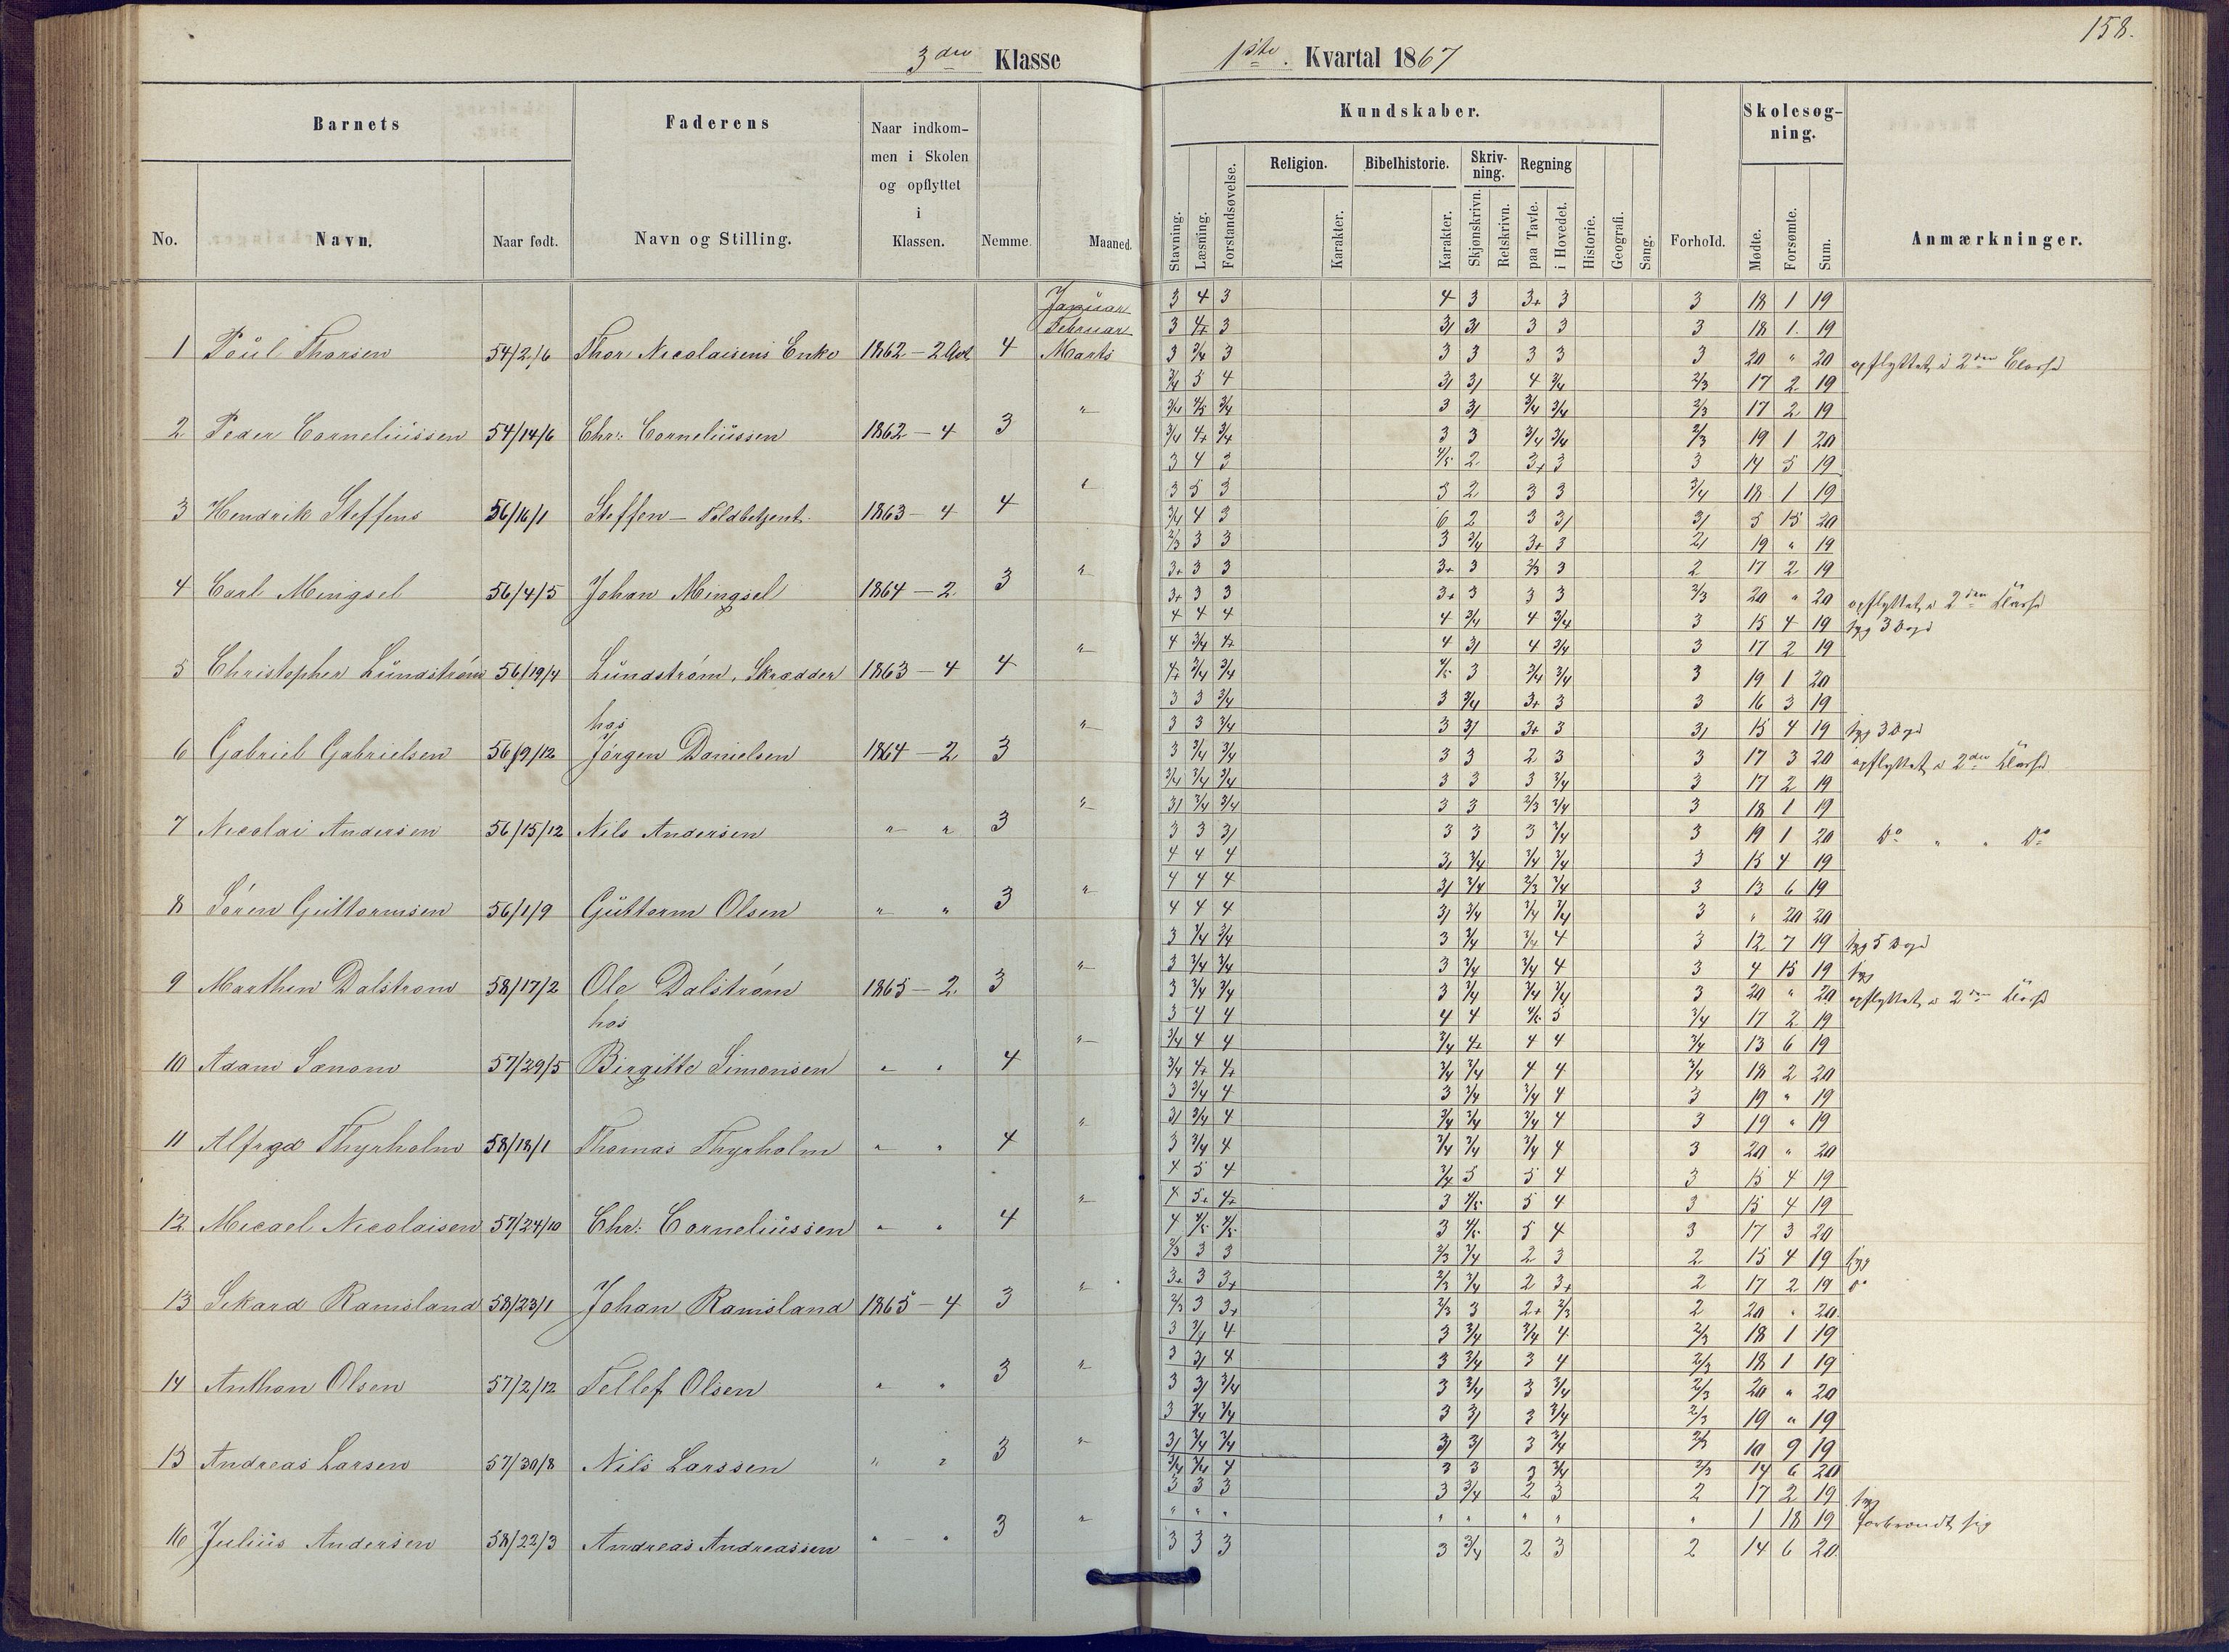 158.
3die Klasse 1ste. Kvartal 1867
Barnets Faderens Naar indkom-men i Skolen og opflyttet i Klassen. Nemme. Maaned. Kundskaber. Forhold. Skolesøg-ning. Anmærkninger.
No. Navn. Naar født. Navn og Stilling.
Stavning. Læsning. Forstandsøvelse. Religion. Karakter. Bibelhistorie. Karakter. Skriv-ning. Skjønskrivn. Retskrivn. Regning paa Tavle. i Hovedet. Historie. Geografi. Sang. Mødte. Forsømte. Sum.
Januar 3 4 3 4 3 3+ 3 3 18 1 19
Februar 3 4+ 3 3/ 3/ 3 3 3 18 1. 19
1 Poul Thorsen 54/2/6 Thor Nicolaisens Enke 1862 - 2 4 Marts 3 3/4 3 3 3 3 3 3 20 " 20 opflyttet i 2den Classe
3/4 5 4 3/ 3/ 4 3/4 2/3 17 2 19
3/4 4/5 3/4 3 3/ 3/4 3/4 2/3 17 2 19
2 Peder Corneliussen 54/14/6 Chr: Corneliussen 1862 - 4 3 " 3/4 4+ 3/4 3 3 3/4 3/4 2/3 19 1 20
3 4 3 4/5 2 3+ 3 3 14 5 19
3 5 3 5 2 3 3 3/4 18 1 19
3 Hendrik Steffens 56/16/1 Steffen - Toldbetjent 1863 - 4 4 " 3/4 4 3 6 2 3 3/ 3/ 5 15 20
2/3 3 3 3 3/4 3+ 3 2/ 19 " 19
3+ 3 3 3+ 3 2/3 3 2 17 2 19
4 Carl Mingsel 56/4/5 Johan Mingsel 1864 - 2 3 " 3+ 3 3 3+ 3 3 3 2/3 20 " 20 opflyttet i 2den Classe
4 4 4 4 3/4 4 3/4 3 15 4 19 syg 3 Dage
4 3/4 4+ 4 3/ 4 3/4 3 17 2 19
5 Christopher Lundstrøm 56/19/4 Lundstrøm, Skrædder 1863 - 4 4 " 4+ 3/4 3/4 4/5 3 3/4 3/4 3 19 1 20
3 3 3/4 3 3/4 3+ 3 3 16 3 19
hos 3 3 3/4 3 3/ 3+ 3 3/ 15 4 19 syg 3 Dage
6 Gabriel Gabrielsen 56/9/12 Jørgen Danielsen 1864 - 2 3 " 3 3/4 3/4 3 3 2 3 3 17 3 20 opflyttet i 2den Classe
3/4 3/4 3/4 3 3 3 3/4 3 17 2 19
3/ 3/4 3/4 3 3 2/3 3/4 3 18 1 19
7 Nicolai Andersen 56/15/12 Nils Andersen " " 3 " 3 3 3/ 3 3 3 3/4 3 19 1 20 Do " " Do
4 4 4 3/ 3/4 3/4 3/4 3 15 4 19
4 4 4 3/ 3/4 2/3 3/4 3 13 6 19
8 Søren Guttormsen 56/1/9 Guttorm Olsen " " 3 " 4 4 4 3/ 3/4 3/4 3/4 3 " 20 20
3 3/4 3/4 3 3/4 3/4 4 3 12 7 19 syg 5 Dage
3 3/4 3/4 3 3/4 3/4 4 3 4 15 19 syg
9 Marthin Dalstrøm 58/17/2 Ole Dalstrøm 1865 - 2. 3 " 3 3/4 3/4 3 3/4 3/4 3/4 3 20 " 20 opflyttet i 2den Classe
hos 3 4 4 4 4 4/5 5 3/4 17 2 19
3/4 4 4 3/4 4+ 4 4 3/4 13 6 19
10 Adam Sænom 57/29/5 Birgitte Simonsen " " 4 " 3/4 4+ 4+ 3/4 3/4 4 4 3/4 18 2 20
3 3/4 4 3 3/4 3/4 4 3 19 " 19
3/ 3/4 4 3/4 3/4 3/4 4 3 19 " 19
11 Alfred Thyrholm 58/18/1 Thomas Thyrholm " " 4 " 3 3/4 4 3/4 3/4 3/4 4 3 20 " 20
4 5 4 3/4 5 5 4 3 15 4 19
4 5+ 4+ 3 4/5 5 4 3 15 4 19
12 Micael Nicolaisen 57/24/10 Chr: Corneliussen " " 4 " 4 4/5 4/5 3 4/5 5 4 3 17 3 20
2/3 3 3 2/3 3/4 2 3 2 15 4 19 syg
3+ 3 3+ 2/3 3/4 2 3+ 2 17 2 19 do
13 Sikard Ramsland 58/23/1 Johan Ramsland 1865 - 4 3 " 2/3 3 3+ 2/3 3 2+ 2/3 2 20 " 20.
3 3/4 4 3 3/4 3/4 4 2/3 18 1 19
3 3/ 4 3 3/4 3 4 2/3 18 1 19
14 Anthon Olsen 57/2/12 Tellef Olsen " " 3 " 3 3/ 3/4 3 3/4 3 3/4 2/3 20 " 20
3 3/4 3/4 3 3/ 3 3/4 2/3 19 " 19
3/ 3/4 3/4 3/ 3/ 3 3/4 2/3 10 9 19
15 Andreas Larsen 57/30/8 Nils Larssen " " 3 " 3/4 3/4 4 3 3 3 3/4 2/3 14 6 20
3 3 3 3 3/4 2 3 2 17 2 19 syg
" " " " " " " " 1 18 19 forbrændt sig
16 Julius Andersen 58/22/3 Andreas Andreassen " - " 3 " 3 3 3 3 3/4 2 3 2 14 6 20.